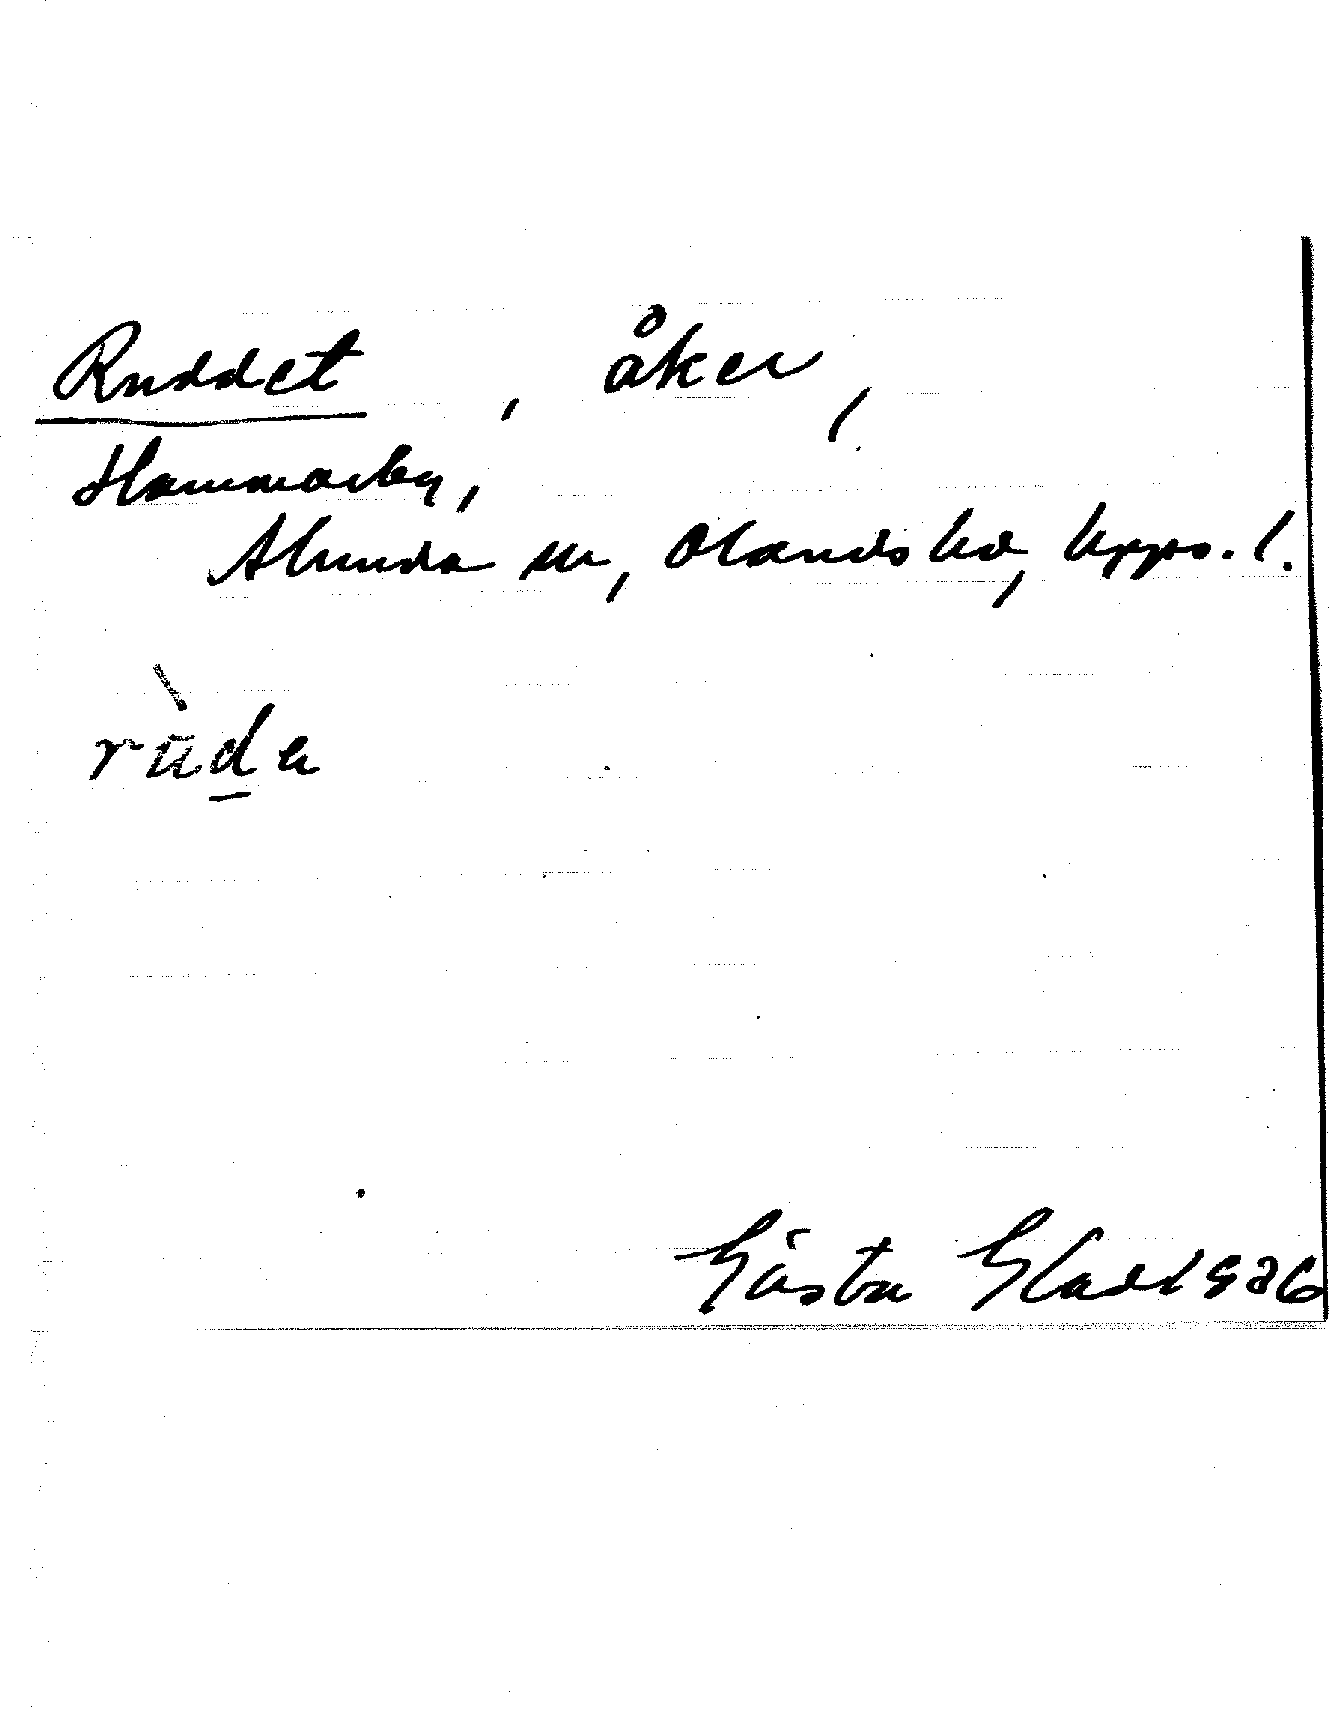 Ruddet, åker,
Hammarby,
Alunda sn, Olands hd, Upps. l.
rùda
Gösta Glad 1926